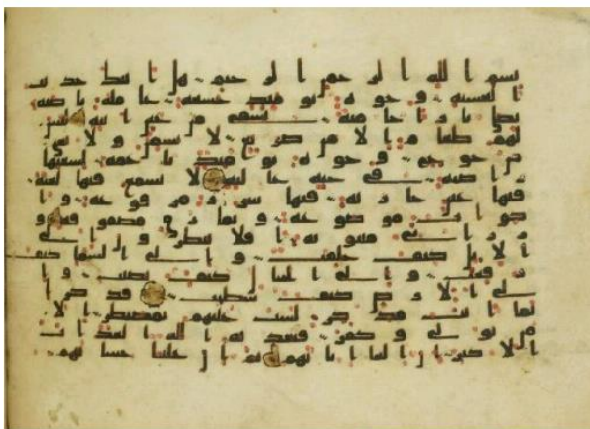 بسم الله الرحمن الرحيم هل اتيك حديث
الغشية وجوه يومئذ خشعة عاملة ناصبة
تصلى نارا حامية تسقى من عين انية ليس
لهم طعام الا من ضريع لا يسمن ولا يغني
من جوع وجوه يومئذ ناعمة لسعيها
راضية في جنة عالية لا تسمع فيها لغية
فيها عين جارية فيها سرر مرفوعة وا
كواب موضوعة ونمارق مصفوفة و
زرابي مبثوثة افلا ينظرون الى
الابل كيف خلقت والى السما كيف
رفعت والى الجبال كيف نصبت وا
لى الارض كيف سطحت فذكر ا
نما انت مذكر لست عليهم بمصيطر الا
من تولى وكفر فيعذبه الله العذاب
الاكبر ان الينا ايابهم ثم ان علينا حسابهم